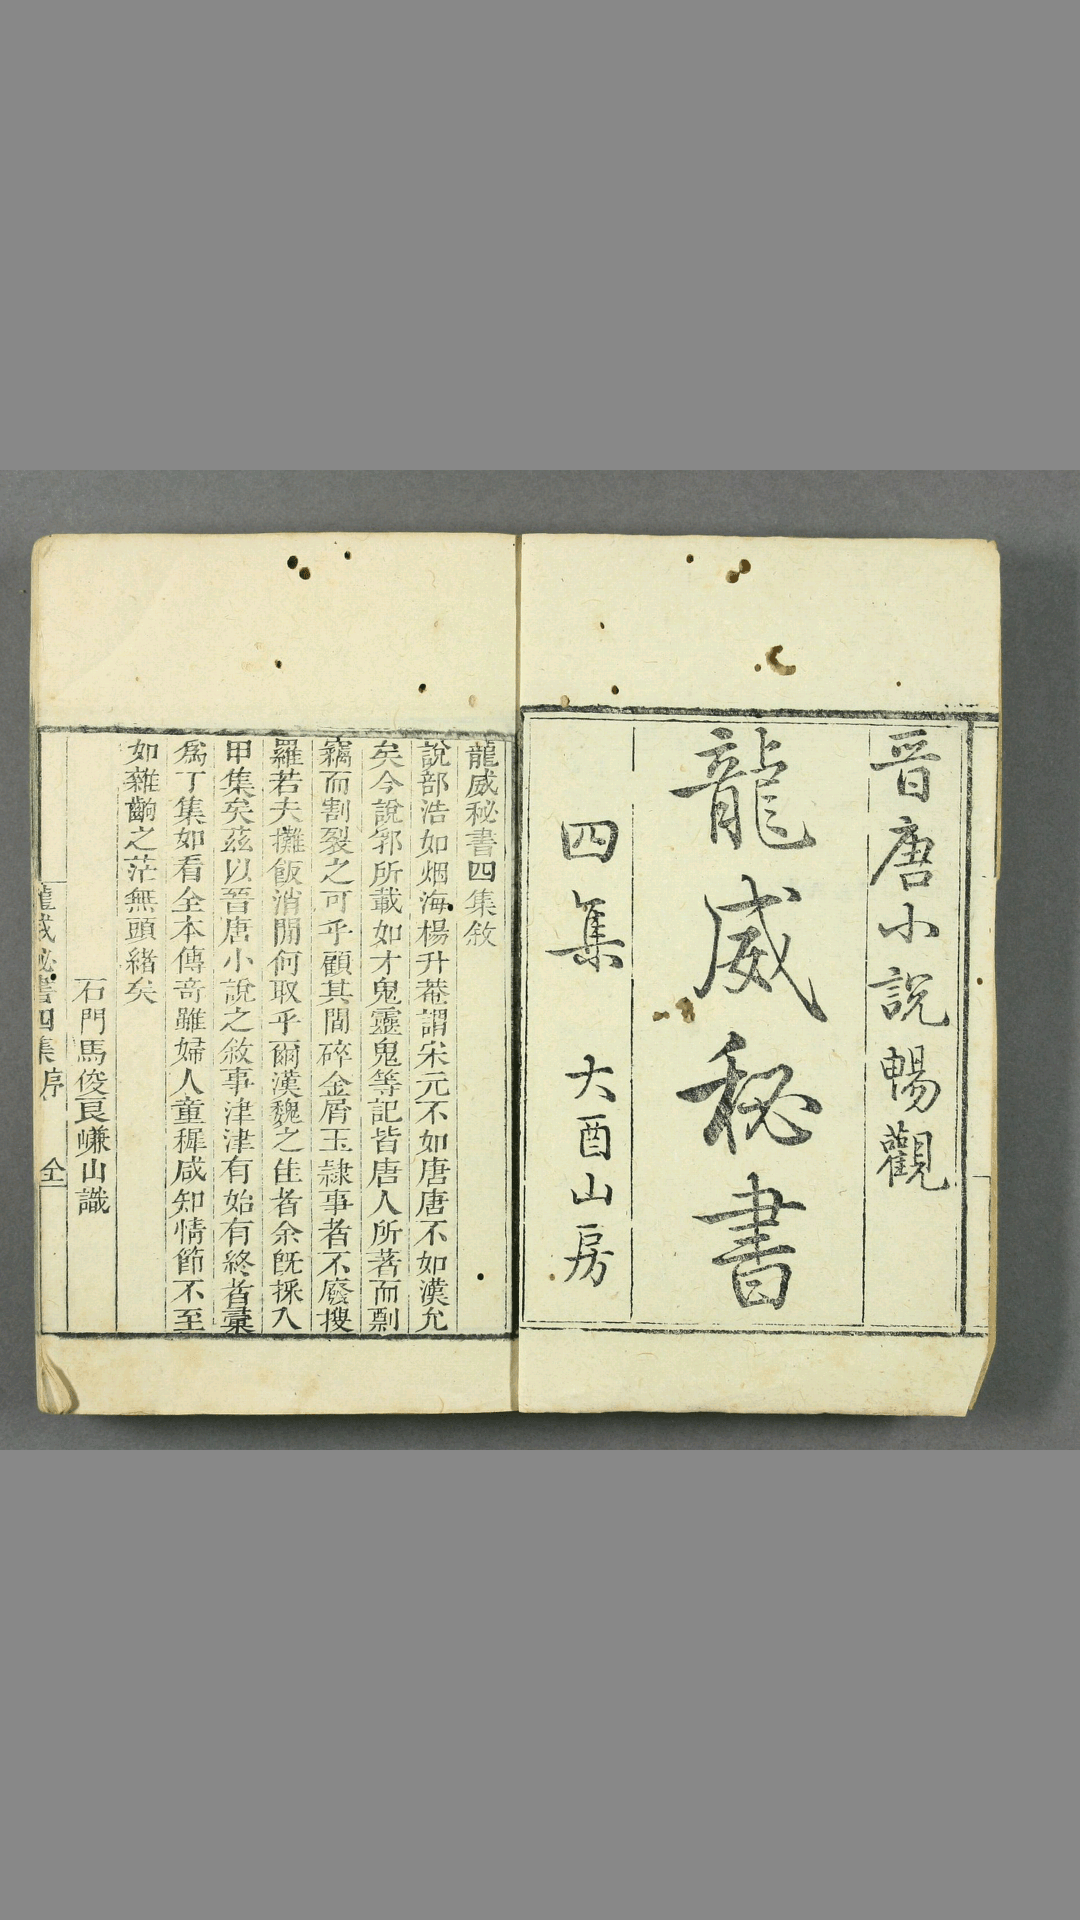 晉唐小說暢觀
龍威秘書
四集 大酉山房
龍威秘書四集敘
說部浩如烟海楊升菴謂宋元不如唐唐不如漢允
矣今說郛所載如才鬼靈鬼等記皆唐人所著而剽
竊而割裂之可乎顧其間碎金屑玉隸事者不廢搜
羅若夫攤飯消閒何取乎爾漢魏之佳者余旣採入
甲集矣茲以晉唐小說之敘事津津有始有終者彙
爲丁集如看全本傳奇雖婦人童稺咸知情節不至
如雜齣之茫無頭緒矣
石門馬俊良嵰山識
龍威秘書四集 序 全